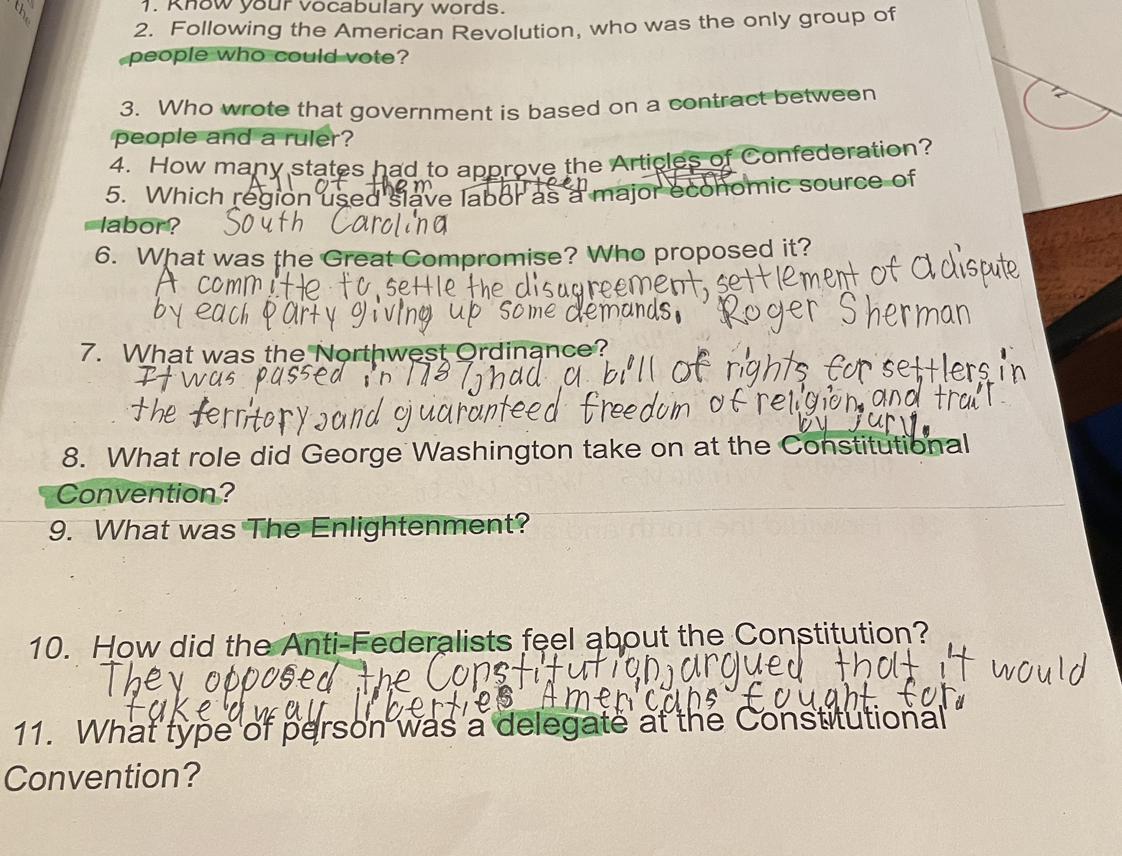 the
1. Know your vocabulary words.
2. Following the American Revolution, who was the only group of
people who could vote?
3. Who wrote that government is based on a contract between
people and a ruler?
4. How many states had to approve the Articles of Confederation?
All of them thirteen
5. Which region used slave labor as a major economic source of
labor? South Carolina
6. What was the Great Compromise? Who proposed it?
A committe to settle the disagreement, settlement of a dispute
by each party giving up some demands. Roger Sherman
7. What was the Northwest Ordinance?
It was passed in 1787, had a bill of rights for settlers in
the territory, and guaranteed freedom of religion, and trail
by jury.
8. What role did George Washington take on at the Constitutional
Convention?
9. What was The Enlightenment?
10. How did the Anti-Federalists feel about the Constitution?
They opposed the Constitution, argued that it would
take away liberties Americans fought for.
11. What type of person was a delegate at the Constitutional
Convention?